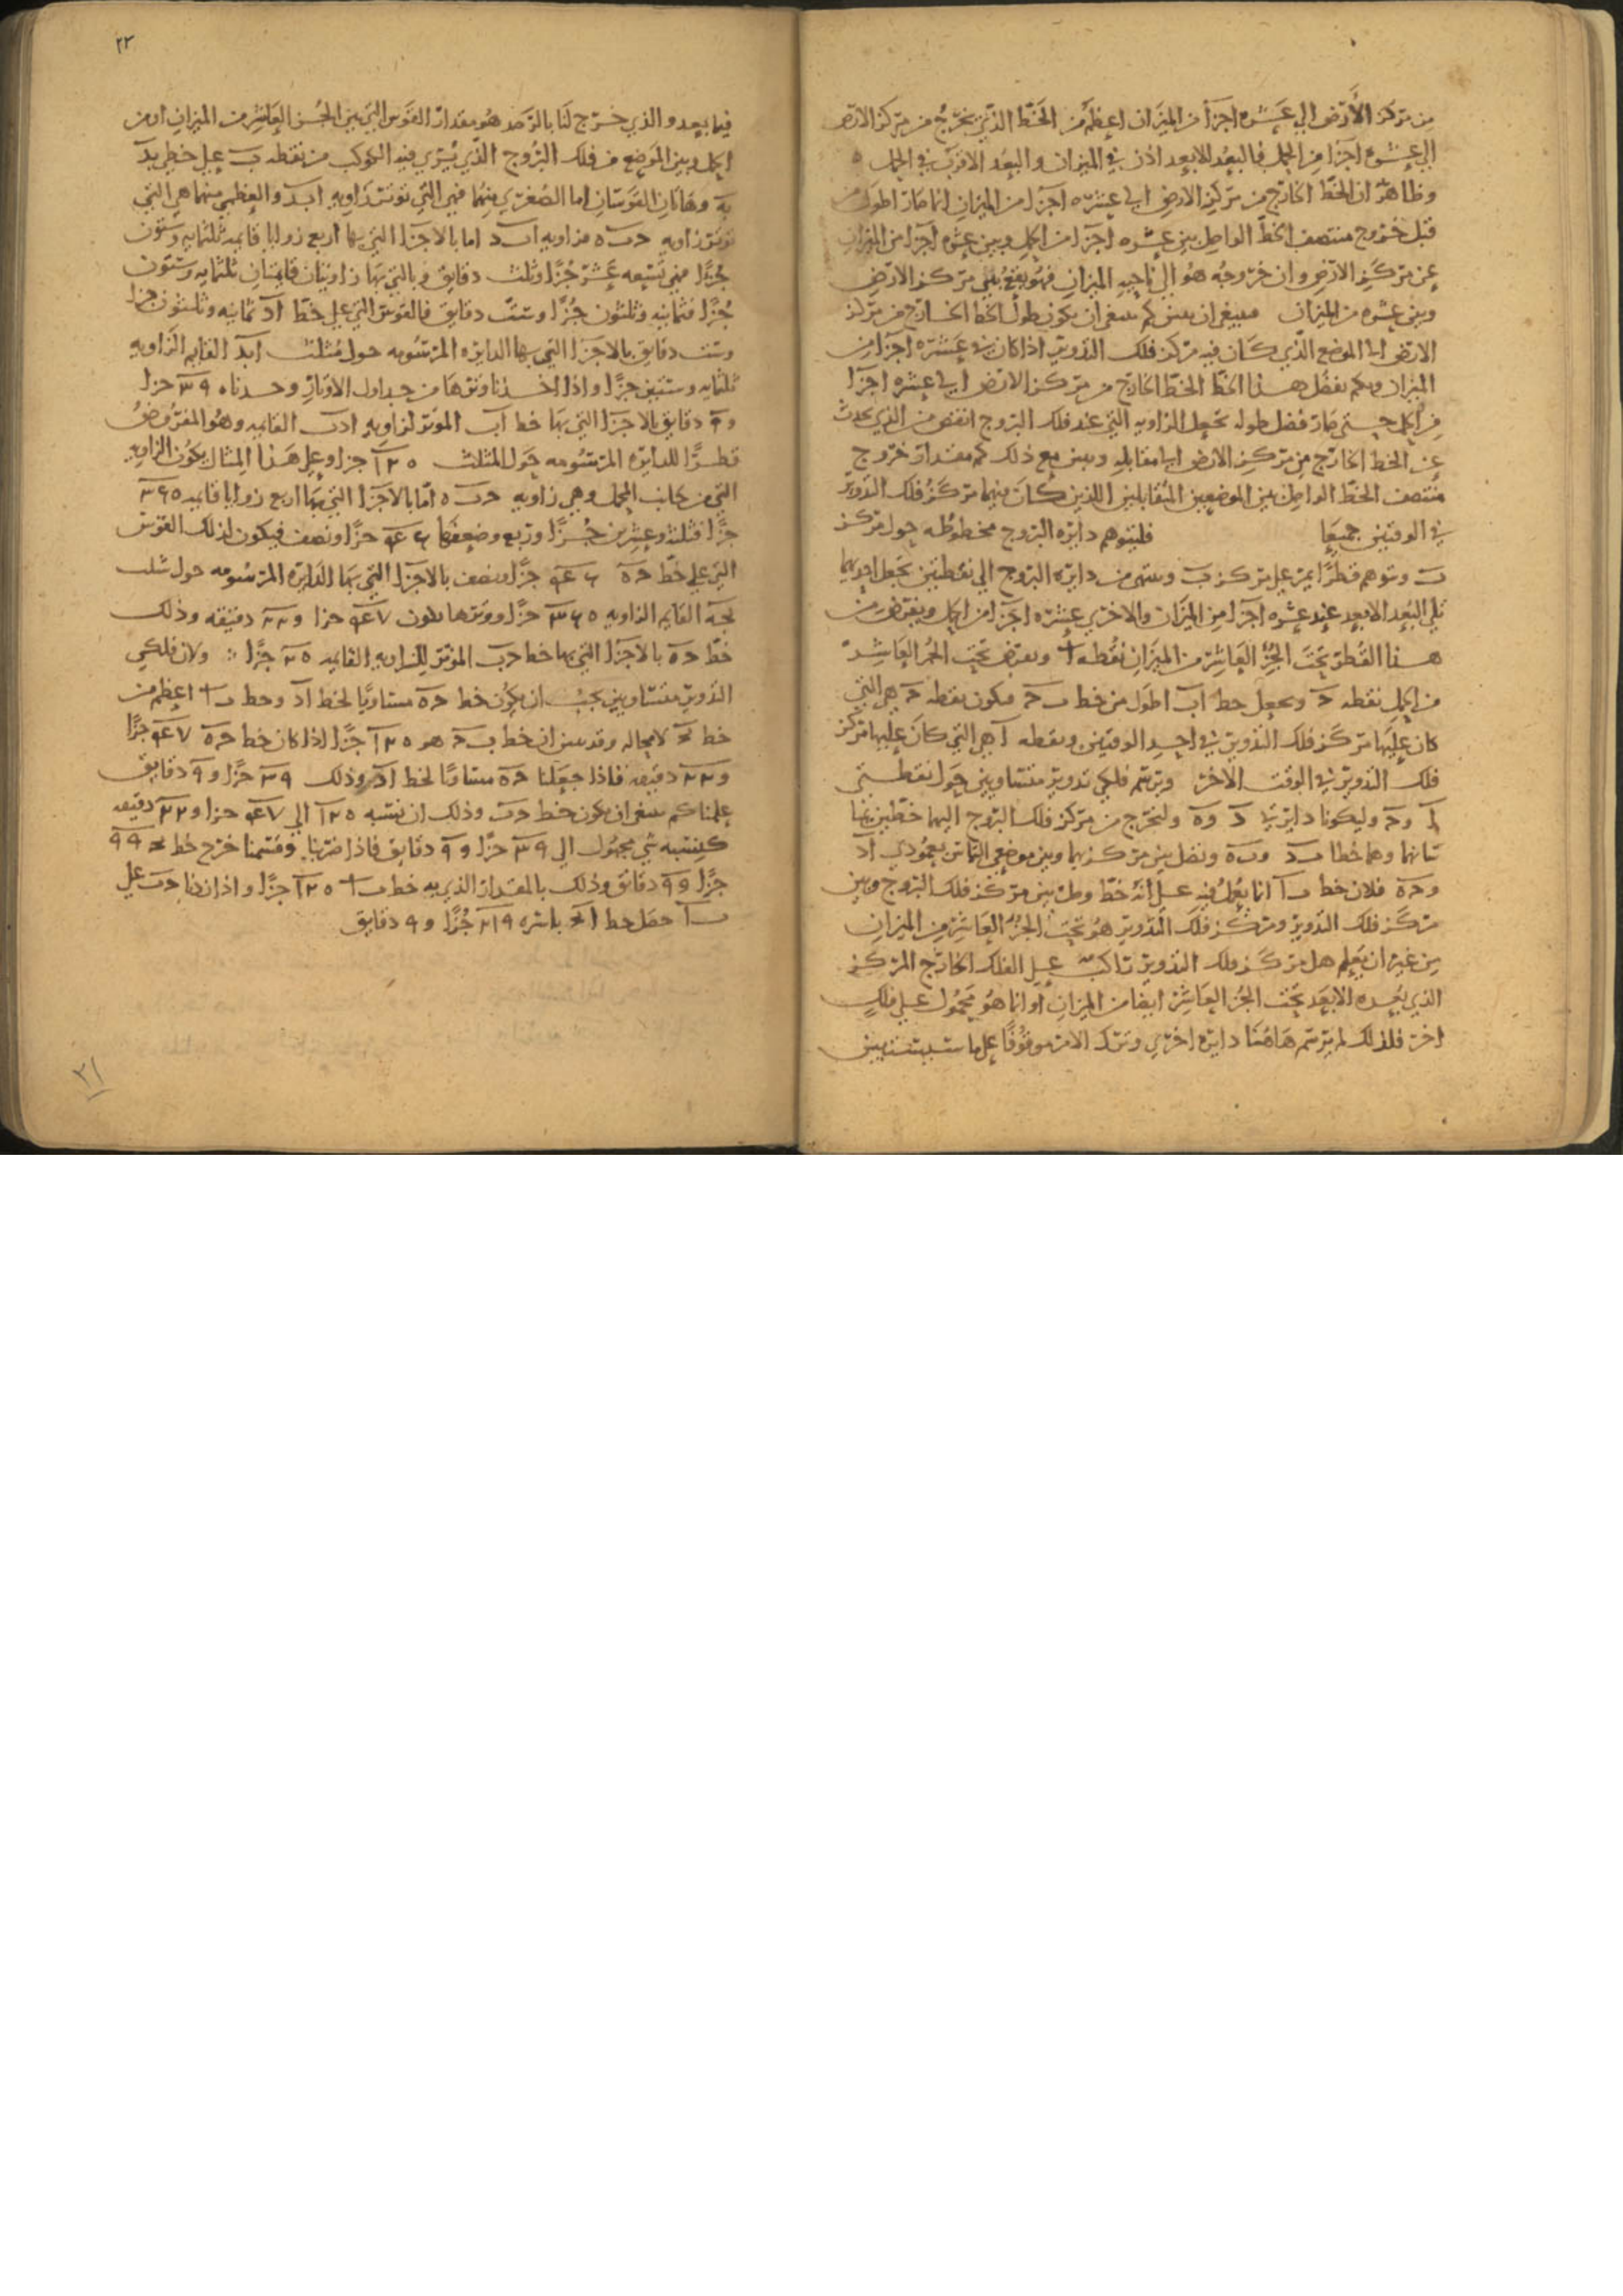 من مركز الأرض إلي عشره اجزأ من الميزان اعظم من الخط الذي يخرج من مركز الارض
الي عشره اجزا من الحمل فالبعد الابعد اذن في الميزان والبعد الاقرب في الحمل ٥
وظاهر ان الخط الخارج من مركز الارض الى عشره اجزا من الميزان انما صار اطول من
قبل خروج منتصف الخط الواصل بين عشره اجزا من الحمل وبين عشره اجزا من الميزان
عن مركز الارض وان خروجه هو الي ناحيه الميزان فهو يقع بين مركز الارض
وبين عشره من الميزان فينبغي ان نبين كم ينبغي ان يكون طول الخط الخارج من مركز
الارض الى الموضع الذي كان فيه مركز فلك التدوير اذا كان في عشره اجزا من
الميزان وبكم يفضل هذا الخط الخط الخارج من مركز الارض الي عشره اجزا
من الحمل حيتي صار فضل طوله يجعل الزاويه التي عند فلك البروج انقص من الذي يحدث
عن الخط الخارج من مركز الارض الى مقابله ونبين مع ذلك كم مقدار خروج
منتصف الخط الواصل بين الموضعين المتقابلين اللذين كان فيهما مركز فلك التدوير
في الوقتين جميعا فليتوهم دايره البروج مخطوطه حول مركز
ب ونتوهم قطرا يمر علي مركز ب وينتهي من دايره البروج الي نقطتين نجعل احديهما
تلي البعد الابعد عند عشره اجزا من الميزان والاخري عشره اجزا من الحمل ونفرض من
هذا القطر تحت الجزء العاشر من الميزان نقطه ا ونفرض تحت الجزء العاشر
من الحمل نقطه ح ونجعل خط اب اطول من خط ب ح فيكون نقطه ح هي التي
كان عليها مركز فلك التدوير في احد الوقتين ونقطه ا هي التي كان عليها مركز
فلك التدوير في الوقت الاخر ونرسم فلكي تدوير متساويين حول نقطتي
ا و ح وليكونا دايرتي د و ه ولنخرج من مركز فلك البروج اليهما خطين
تماسانهما وهما خطا ب د و ب ه ونصل بين مركزيهما وبين موضعي التماس بعمودي اد
و ح ه فلان خط ب ا انما يعمل فيه علي انه خط وصل بين مركز فلك البروج وبين
مركز فلك التدوير ومركز فلك التدوير هو تحت الجزء العاشر من الميزان
من غير ان يعلم هل مركز فلك التدوير راكب علي الفلك الخارج المركز
الذي بعده الابعد تحت الجزء العاشر ايضا من الميزان او انما هو محمول علي فلك
اخر فلذلك لم نرسم هاهنا دايره اخري ونترك الامر موقوفا علي ما سنبينه
٢٣
فيما بعد والذي خرج لنا بالرصد هو مقدار القوس التي بين الجزء العاشر من الميزان او من
الحمل وبين الموضع من فلك البروج الذي يري فيه الكوكب من نقطه ب علي خطي بد
به وهاتان القوستان اما الصغري منهما فهي التي توتر زاويه ا ب د والعظمي منهما هي التي
توتر زاويه ح ب ه فزاويه اب د اما بالاجزا التي بها اربع زوايا قايمه ثلثمايه وستون
جزءا فهي تسعه عشر جزءا وثلث دقايق وبالتي بها زاويتان قايمتان ثلثمايه وستون
جزءا فثمانيه وثلثون جزءا وست دقايق فالقوس التي علي خط اد ثمانيه وثلثون جزا
وست دقايق بالاجزا التي بها الدايره المرسومه حول مثلث ابد القايم الزاويه
ثلثمايه وستين جزءا واذا اخذنا وترها من جداول الاوتار وجدناه ٣٩ جزا
و٩ دقايق بالاجزا التي بها خط اب الموتر لزاويه ادب القايمه وهو المفروض
قطرا للدايره المرسومه حول المثلث ١٢٠ جزا وعلي هذا المثال يكون الزاويه
التي من جانب الحمل وهي زاويه ح ب ه اما بالاجزا التي بها اربع زوايا قايمه ٣٦٠
جزءا فثلثه وعشرين جزءا وربع وضعفها ٤٦ جزءا ونصف فيكون لذلك القوس
التي علي خط ح ه ٤٦ جزءا ونصف بالاجزا التي بها الدايره المرسومه حول مثلث
بحه القايم الزاويه ٣٦٠ جزءا ووترها يكون ٤٧ جزا و٢٢ دقيقه وذلك
خط ح ه بالاجزا التي بها خط حب الموتر للزاويه القايمه ١٢٠ جزءا ولان فلكي
التدوير متساويين يجب ان يكون خط ح ه مساويا لخط اد وخط ب ا اعظم من
خط بح لامحاله وقد تبين ان خط ب ح هو ١٢٠ جزءا اذا كان خط ح ه ٤٧ جزءا
و٢٢ دقيقه فاذا جعلنا ح ه مساويا لخط اد وذلك ٣٩ جزءا و٩ دقايق
علمنا كم ينبغي ان يكون خط حب وذلك ان نسبه ١٢٠ الي ٤٧ جزا و٢٢ دقيقه
كنسبه شي مجهول الي ٣٩ جزءا و٩ دقايق فاذا ضربنا وقسمنا خرج خط بح ٩٩
جزءا و٩ دقايق وذلك بالمقدار الذي به خط ب ا ١٢٠ جزءا واذا زدنا حب علي
ب ا حصل خط اح باسره ٢١٩ جزءا و٩ دقايق
٣١